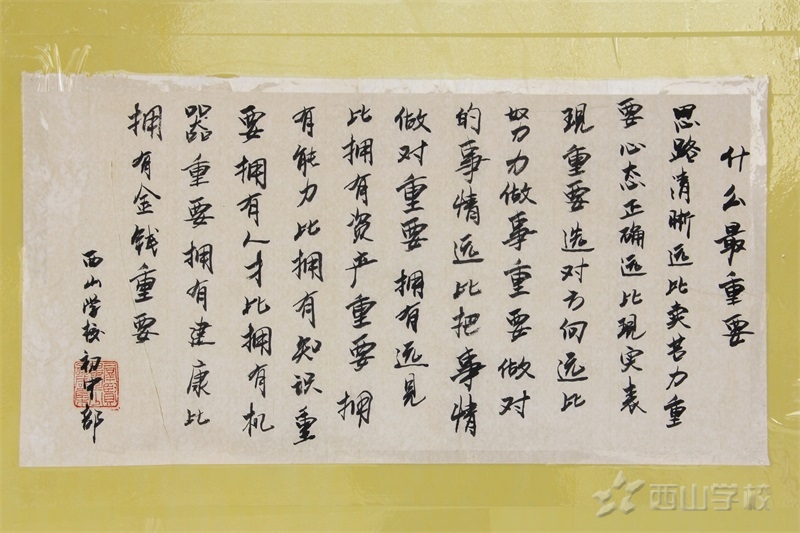 什么最重要
思路清晰远比卖苦力重
要心态正确远比现实表
现重要选对方向远比
努力做事重要做对
的事情远比把事情
做对重要拥有远见
比拥有资产重要拥
有能力比拥有知识重
要拥有人才比拥有机
器重要拥有建康比
拥有金钱重要
西山学校初中部
西山学校